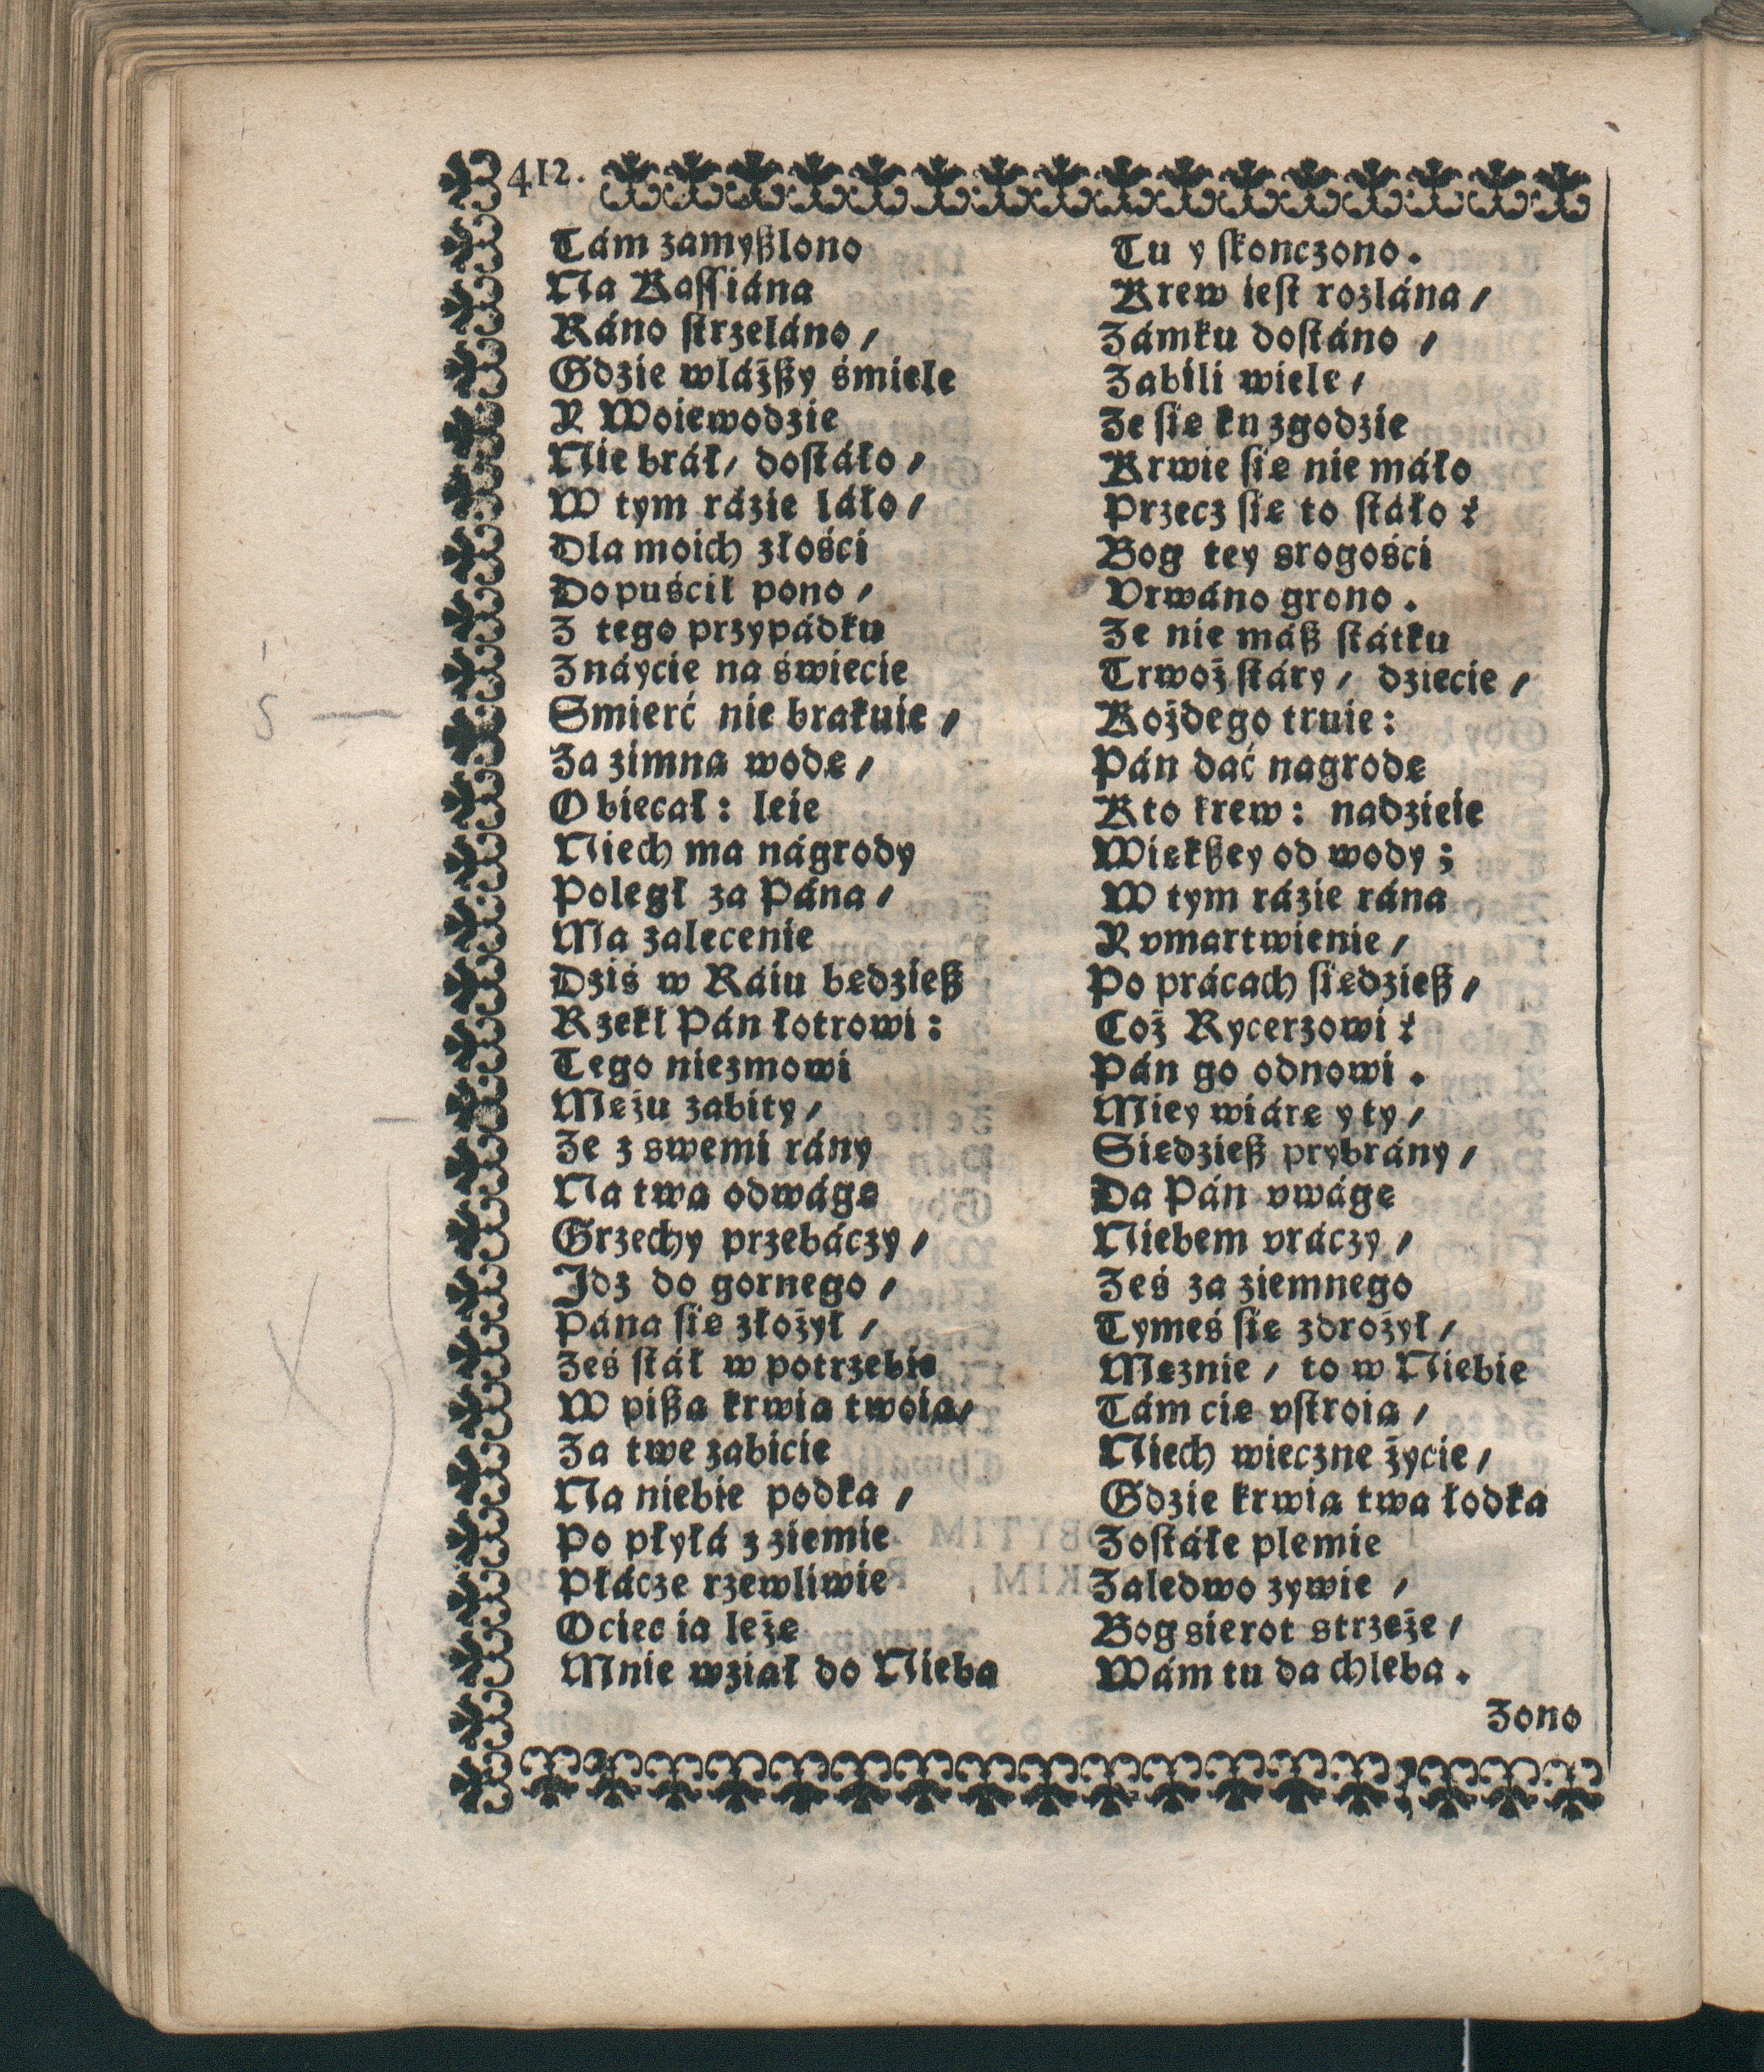 412.
Tám zamyßlono
Na Kaſſiána
Ráno ſtrzeláno /
Gdzie wláżßy śmiele
Y Woiewodzie
Nie bráł / doſtáło /
W tym rázie láło /
Dla moich złości
Dopuścił pono /
Z tego przypádku
Znáycie na świecie
Smierć nie brakuie /
Za zimna wodę /
Obiecał: leie
Niech ma nágrody
Poległ za Pána /
Ma zalecenie
Dziś w Ráiu będzieß
Rzekł Pán łotrowi:
Tego niezmowi
Mężu zabity /
Że z swemi rány
Na twa odwágę
Grzechy przebáczy /
Idz do gornego /
Pána się złożył /
Żeś ſtáł w potrzebie
W pißa krwia twoia /
Za twe zabicie
Na niebie podka /
Po płyłá z ziemie
Płácze rzewliwie
Ociec ia leżę
Mnie wział do Nieba
Tu y ſkonczono.
Krew ieſt rozlána /
Zámku doſtáno /
Zabili wiele /
Ze się ku zgodzie
Krwie się nie máło
Przecz się to ſtáło?
Bog tey srogości
Vrwáno grono.
Ze nie máß ſtátku
Trwoż ſtáry / dziecię /
Kożdego truie:
Pán dać nagrodę
Kto krew: nadzieie
Więkßey od wody;
W tym rázie rána
Y vmartwienie /
Po prácach siędzieß /
Coż Rycerzowi?
Pán go odnowi.
Miey wiárę y ty /
Siędzieß prybrány /
Da Pán vwágę
Niebem vráczy /
Żeś za ziemnego
Tymeś się zdrożył /
Mężnie / to w Niebie
Tám cię vſtroia /
Niech wieczne życie /
Gdzie krwia twa łodka
Zoſtáłe plemie
Zaledwo zywie /
Bog sierot strzeże /
Wám tu da chleba.
Zono